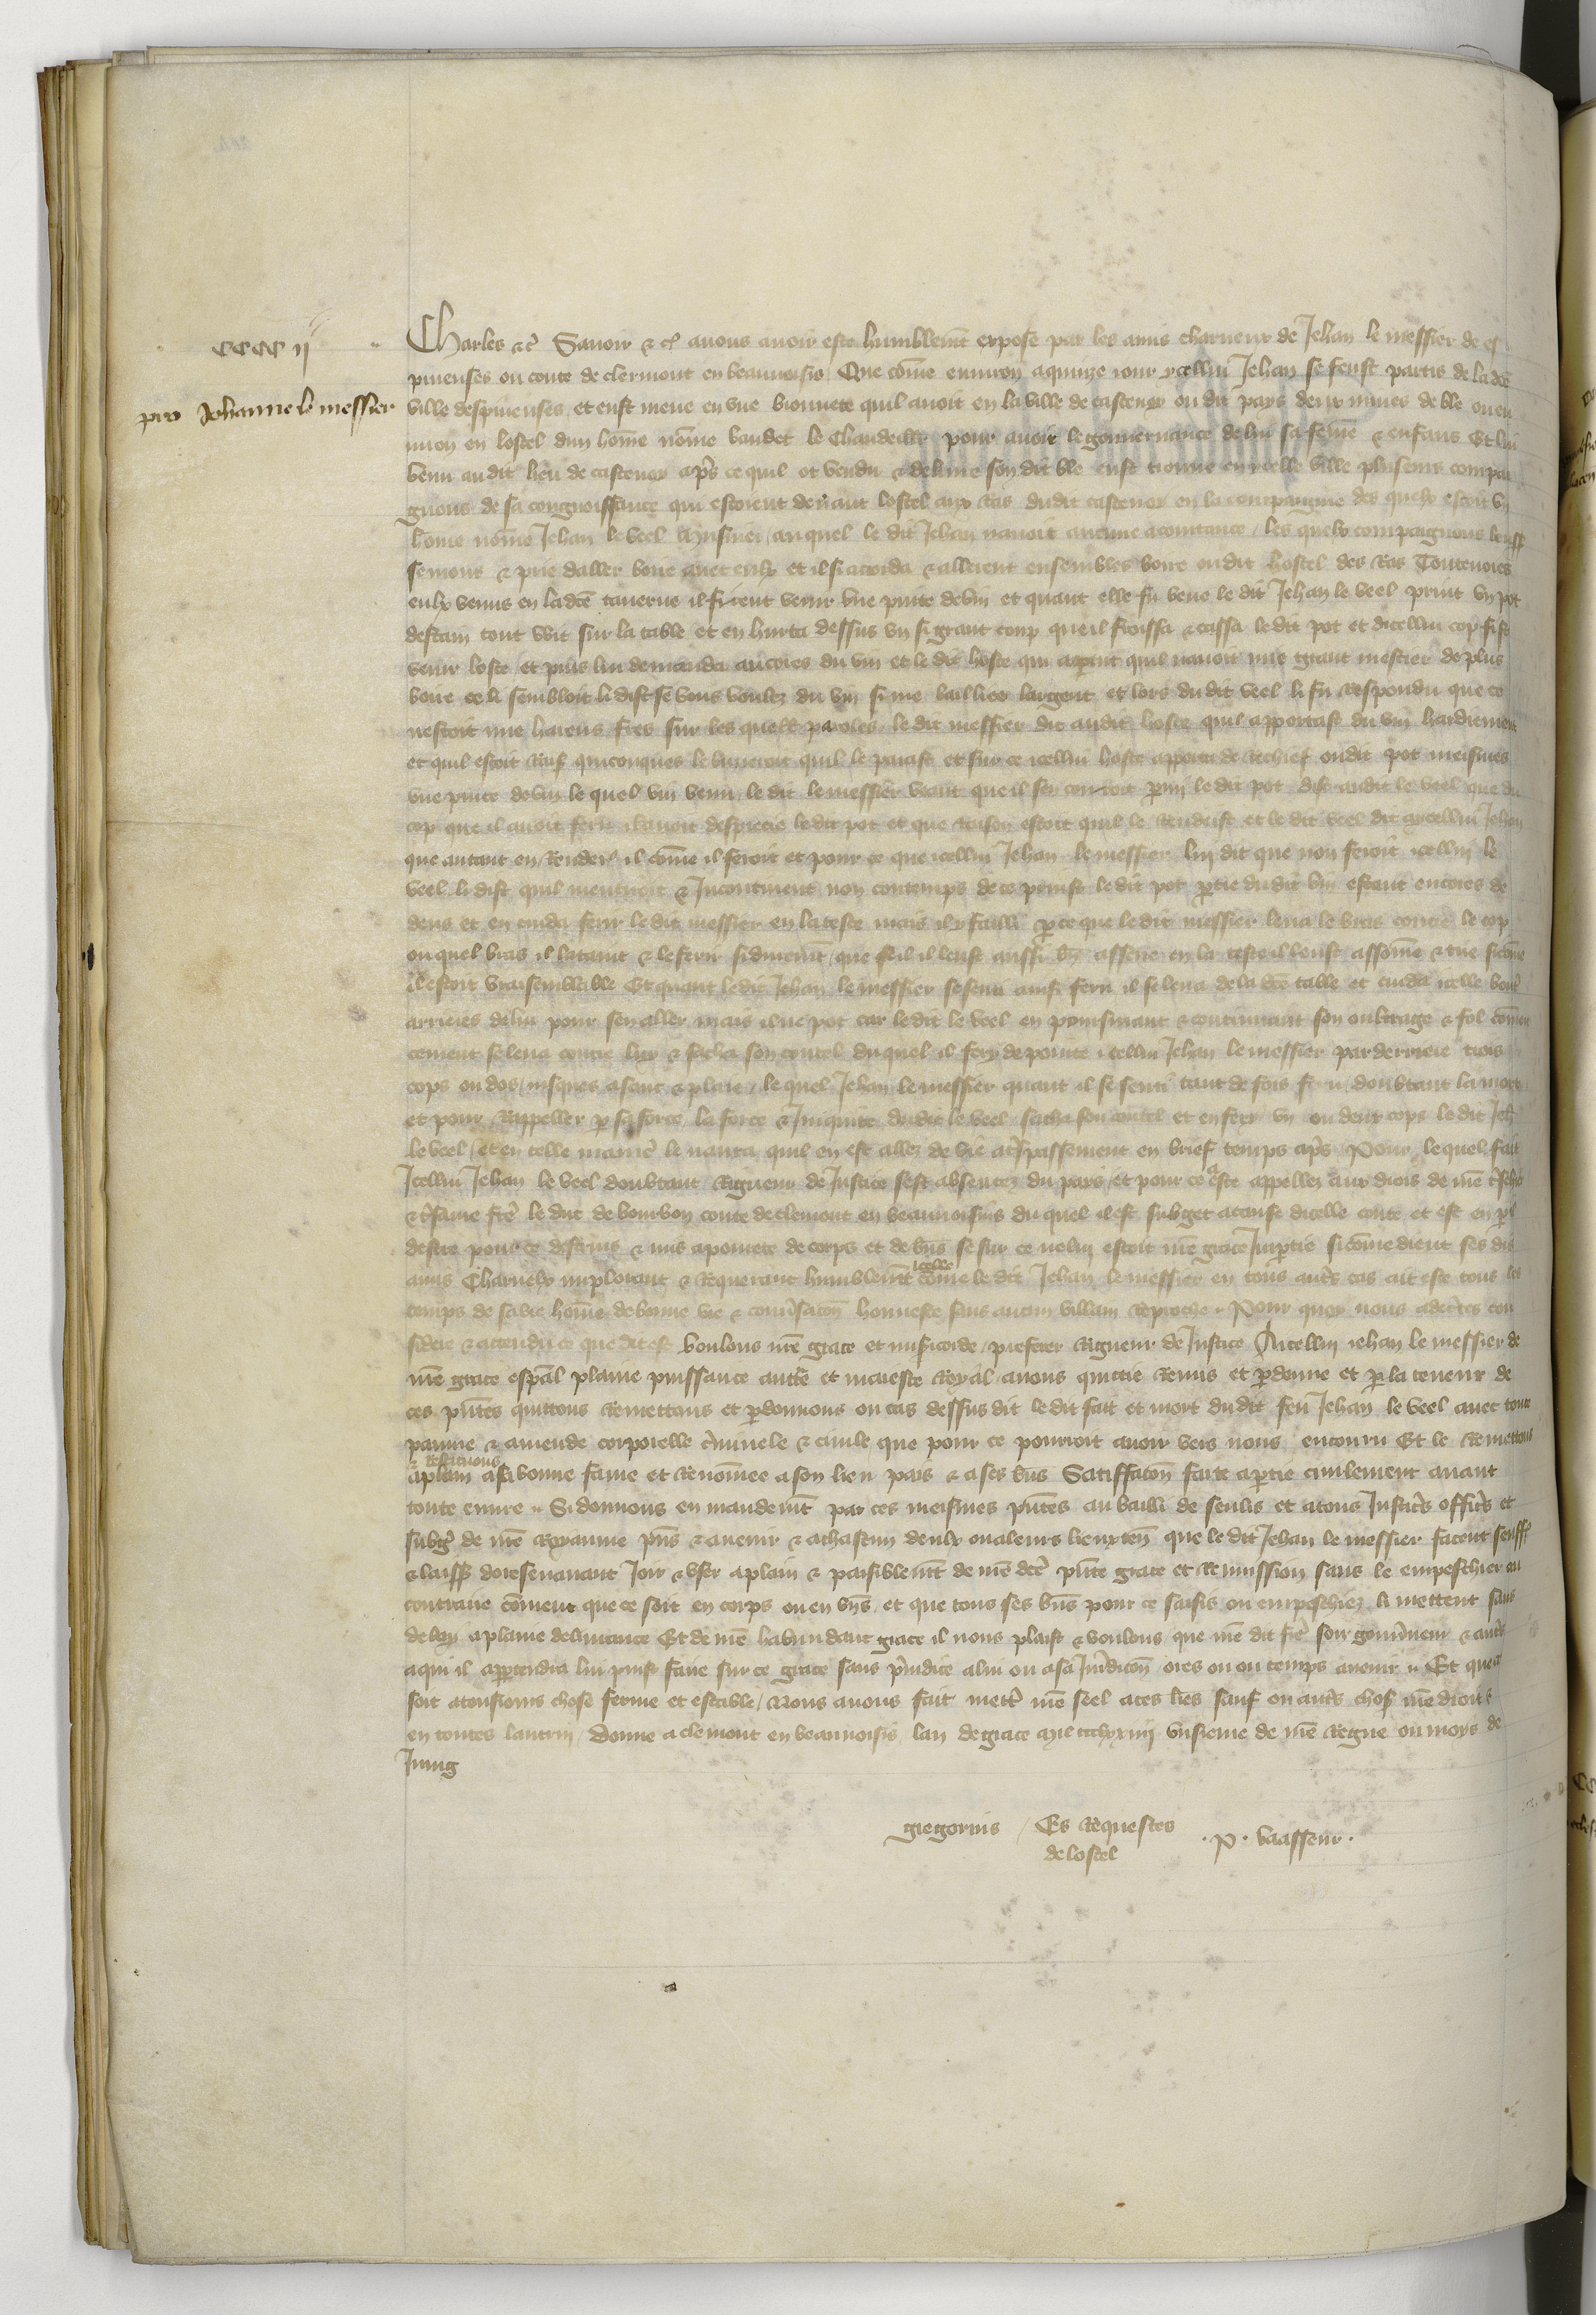 cccc ii
pro Johanne le messier
Charles &c̃ Savoir &c̃ a nous avoir este humblemt̃ expose par les amis charneux de Jehan le messier de es
pineuses ou conte de clermont en beauvoisis Que com̃e environ a quinze jour ycellui Jehan se feust partis de ladc̃e
ville despineuses et eust mene en une brouete quil avoit en la ville de castenoy ou dit pays deux mines de ble ou en
viron en lostel dun hom̃e nom̃e baudet le Chandeillr pour avoir le gouvernance de lui sa fem̃e & enfans Et lui
venu au dit lieu de castenoy apr̃s ce quil ot vendu & delivre son dit ble eust trouve en icelle ville pluseurs compai
gnons de sa congnoissance qui estoient devant lostel aux Ras dudit castenoy en la compaignie des quelx estoit un
hom̃e nom̃e Jehan le veel cuisinier au quel le dit Jehan navoit aucune acointance les quelx compaignons leuss
semons & prie daller boire avec eulx et il si acorda & allerent ensembles boire oudit hostel des Ras Toutevoies
eulx venus en ladc̃e taverne il firent venir une pinte de vin et quant elle fu beue le dit Jehan le veel print un pot
destain tout vuit sur la table et en hurta dessus un si grant coup que il froissa & cassa le dit pot et dicellui cop fist
venir loste et puis lui demanda ancores du vin et le dit hoste qui apparut quil navoit mie grant mestier de plus
boire ce li sembloit li dist se vous voulez du vin si me bailliez largent et lors du dit veel li fu Respondu que ce
nestoit mie harens fres sur les quelles paroles le dit messier dit audit hoste quil apportast du vin hardiement
et quil estoit Raisꝰ quiconques le buveroit quil le paiast et sur ce icellui hoste apporta de Rechief oudit pot meismes
une pinte de vin le quel vin venu le dit le messier veant que il sen couroit par mi le dit pot dist audit le veel que du
cop que il avoit feru il avoit despiecie ledit pot et que Raison estoit quil le Rendist et le dit veel dit a ycellui Jehan
que autant en Rendroit il com̃e il feroit et pour ce que icellui Jehan le messier lui dit que non feroit icellui le
veel li dist quil mentiroit & Incontinent non contemps de ce prinst le dit pot partie dudit vin estant encores de
dens et en cuida ferir le dit messier en la teste mais il y failli par ce que le dit messier leva le bras contre le cop
ou quel bras il lataint & le feri si durement que se il leust aussi bn̄ assene en la teste il leust assom̃e & tue sicom̃e
il estoit vraisemblable Et quant le dit Jehan le messier se senti ainsi feru il se leva de la dc̃e table et cuida icelle bout̃
arrieres de lui pour sen aller mais il ne pot car le dit le veel en poursuivant & continuant son oultrage & fol com̃en
cement se leva contre luy & sacha son coutel duquel il fery de pointe icellui Jehan le messier par derriere trois
cops ou dos jusques a sanc & plaie le quel Jehan le messier quant il se senti tant de fois feru doubtant la mort
et pour Rappeller par sa force la force & Iniquite dudit le veel sacha son coutel et en feri un ou deux cops le dit Jeh̃
le veel et en telle manier̃ le navra quil en est allez de vie a trespassement en brief temps apr̃s Pour le quel fait
Icellui Jehan le veel doubtant Rigueur de Justice sest absentez du pays et pour ce a este appellez aux drois de nr̃e tr̃schier
& tr̃same frer̃ le duc de bourbon conte de clermont en beauvoisins du quel il est subget a cause dicelle conte et est en peril
destre pour ce destruis & mis a povrete de corps et de biens se sur ce ne lui estoit nr̃e grace Impartie si com̃e dient ses dis
amis Charnelx implorant & Requerant humblemt̃ icelle com̃e le dit Jehan le messier en tous autr̃s cas ait este tous les
temps de sa vie hom̃e de bonne vie & conversacion honneste sans aucun villain Reproche Pour quoy nous adecertes con
sidere & attendu ce que dit est voulons nr̃e grace et misericorde preferer Rigueur de Justice A icellui jehan le messier de
nr̃e grace esp̃al plaine puissance auct̃e et maieste Royal avons quittie Remis et pardonne et par la teneur de
ces pñtes quittons Remettons et pardonnons ou cas dessus dit le dit fait et mort du dit feu Jehan le veel avec toute
paine & amende corporelle criminele & civile que pour ce pourroit avoir vers nous encouru Et le Remettons
& Restituons
aplain a sa bonne fame et Renom̃ee a son lieu pais & a ses bn̄s Satiffacion faite a partie civilement avant
toute euvre Si donnons en mandemt̃ par ces meismes pñtes au bailli de senlis et a tous Justicr̃s officr̃s et
subgr̃ de nr̃e Royaume pñs & avenir & a chascun deulx ou a leurs lieuxten̄ que le dit Jehan le messier facent seuffr̃
& laissr̃ doresenavant Joir & user aplain & paisiblemt̃ de nr̃e dc̃e pñte grace et Remission sans le empeschier au
contraire com̃ent que ce soit en corps ou en bn̄s et que tous ses bn̄s pour ce saisis ou empeschiez li mettent sans
delay a plaine delivrance Et de nr̃e habundant grace il nous plaist & voulons que nr̃e dit frer̃ son gouverneur & autr̃s
a qui il appartendra lui puist faire sur ce grace sans preiudice a lui ou a sa Juridicion ores ou ou temps avenir Et que ce
soit a tousiours chose ferme et estable Nous avons fait mettr̃ nr̃e seel a ces lr̃es sauf en autr̃s chosꝰ nr̃e droit
en toutes lautrui donne a clermont en beauvoisis lan de grace mil ccciiiixx xi unsieme de nr̃e Regne ou moys de
Juing
gregorius / Es Requestes de lostel
. P . vaasseur .